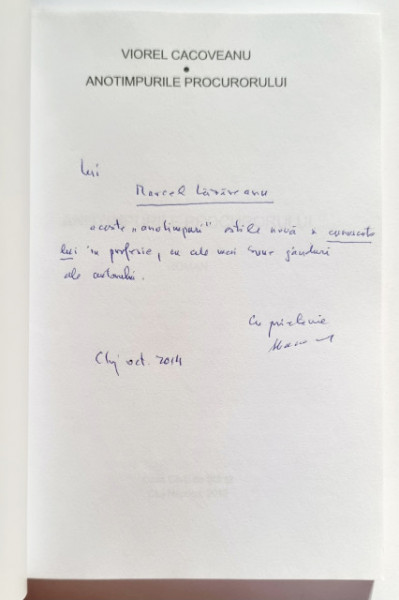 VIOREL CACOVEANU
•
ANOTIMPURILE PROCURORULUI
Lui
Marcel Lăzăreanu
aceste „anotimpuri”
lui în profesie, cu cele mai bune gânduri
ale autorului.
Cu prietenie
Cluj oct. 2014